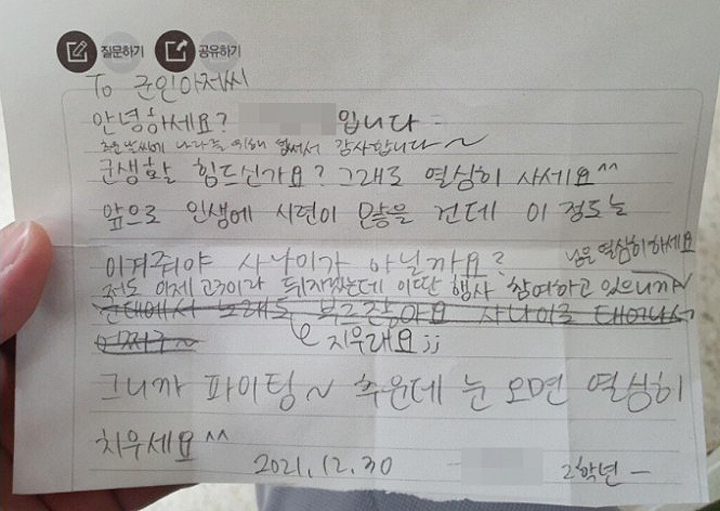 질문하기 공유하기
To 군인아저씨
안녕하세요? 입니다
추운날씨에 나라를 위해 힘써서 감사합니다~
군생활 힘드신가요? 그래도 열심히 사세요^^
앞으로 인생에 시련이 많을 건데 이 정도는
이겨줘야 사나이가 아닐까요?
저도 이제 고3이라 뒤지겠는데 이딴 행사 참여하고 있으니까~
님은 열심히 하세요
군대에서 노래도 부르잖아요 사나이로 태어나서
어쩌구~
지우래요;;
그니까 파이팅~ 추운데 눈 오면 열심히
치우세요^^
2021.12.30 2학년